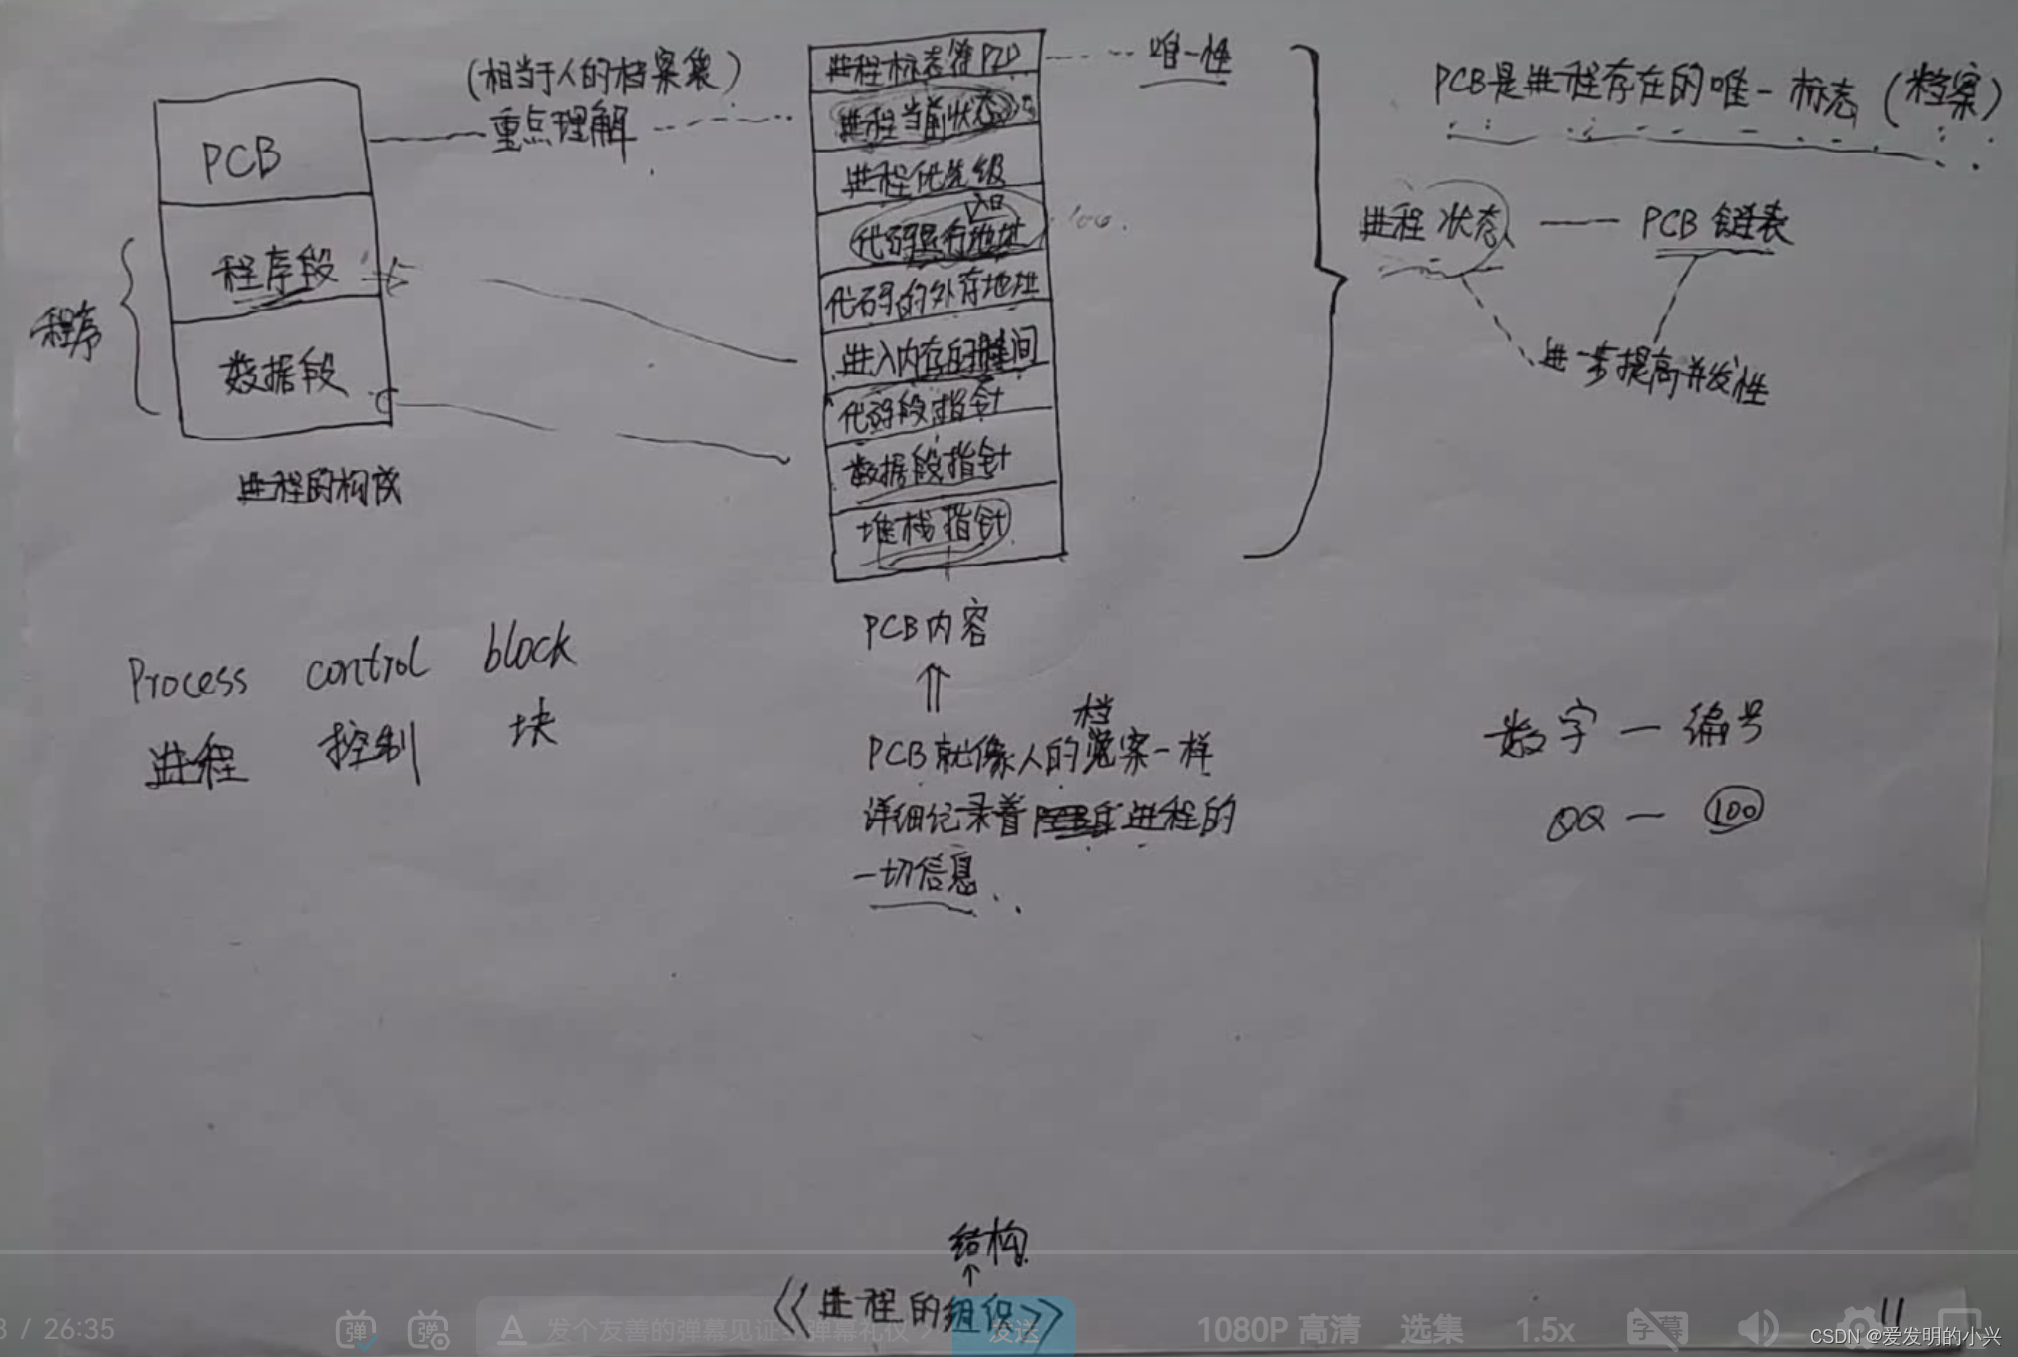 (相当于人的档案袋)
重点理解
PCB
程序段
数据段
程序
进程的构成
进程标志符PID
唯一性
进程当前状态
进程优先级
入口
代码运行地址
100
代码的外存地址
进入内存的时间
代码段指针
数据段指针
堆栈指针
PCB内容
PCB是进程存在的唯一标志(档案)
进程状态 — PCB链表
进一步提高并发性
Process control block
进程 控制 块
档
PCB就像人的案一样
详细记录着进程的
一切信息
数字 — 编号
QQ — 100
结构
《进程的组织》
11
/ 26:35
弹
弹
发个友善的弹幕见证
弹幕礼仪 >
发送
1080P 高清
选集
1.5x
字幕
CSDN @爱发明的小兴